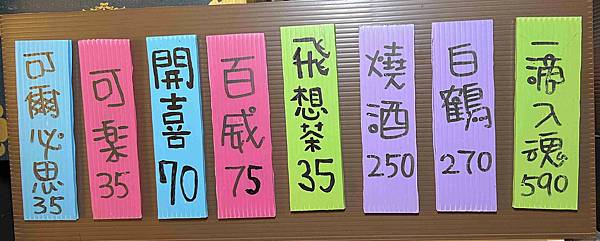 可爾必思 35
可楽 35
開喜 70
百威 75
飛想茶 35
燒酒 250
白鶴 270
一滴入魂 590